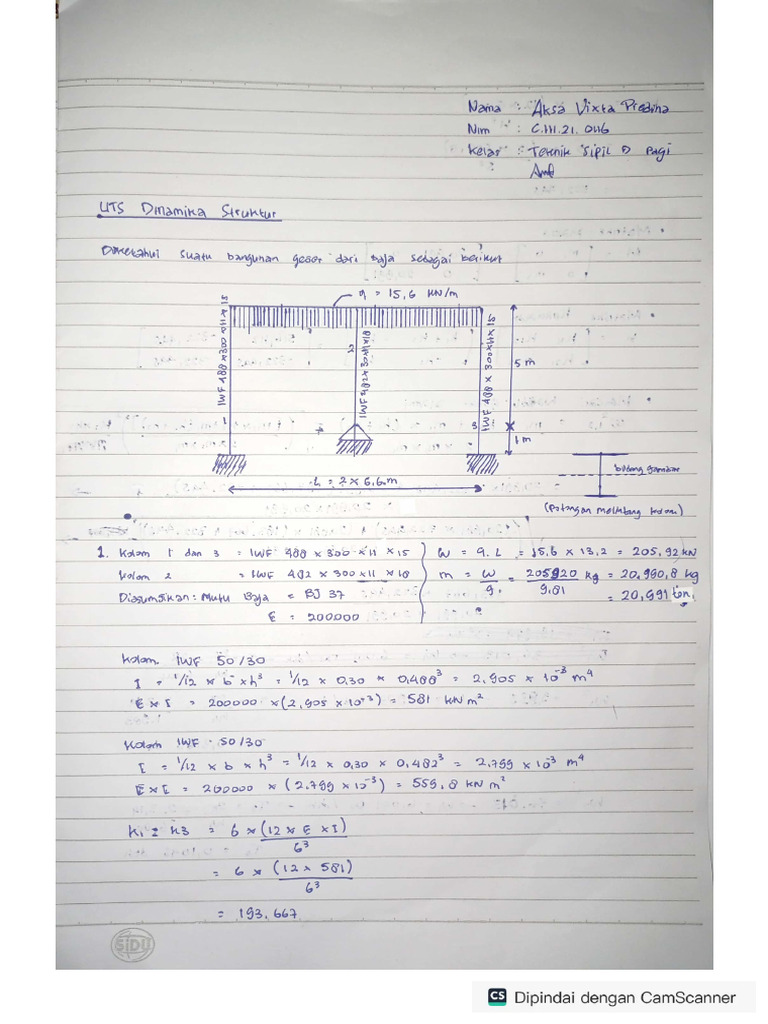 Nama : Aksa Vixta Predina
Nim : C.111.21.0116
Kelas : Teknik Sipil D Pagi
UTS Dinamika Struktur
Diketahui suatu bangunan geser dari baja sebagai berikut
q = 15,6 KN/m
IWF 488 x 300 x 11 x 15
2
IWF 482 x 300 x 11 x 18
IWF 488 x 300 x 11 x 15
5 m
1
3
1 m
L = 2 x 6,6 m
bidang gambar
(Potongan melintang kolom)
1. Kolom 1 dan 3 = IWF 488 x 300 x 11 x 15
Kolom 2 = IWF 482 x 300 x 11 x 18
Diasumsikan : Mutu Baja = BJ 37
E = 200000
W = q. L = 15,6 x 13,2 = 205,92 kN
m = W/g. = 205920/9,81 kg = 20.990,8 kg
= 20,991 ton.
Kolom IWF 50/30
I = 1/12 x b x h³ = 1/12 x 0,30 x 0,488³ = 2,905 x 10⁻³ m⁴
E x I = 200000 x (2,905 x 10⁻³) = 581 kN m²
Kolom IWF 50/30
I = 1/12 x b x h³ = 1/12 x 0,30 x 0,482³ = 2,799 x 10⁻³ m⁴
E x I = 200000 x (2,799 x 10⁻³) = 559,8 kN m²
K1 = K3 = 6 x (12 x E x I)/6³
= 6 x (12 x 581)/6³
= 193,667
SIDU
CS Dipindai dengan CamScanner